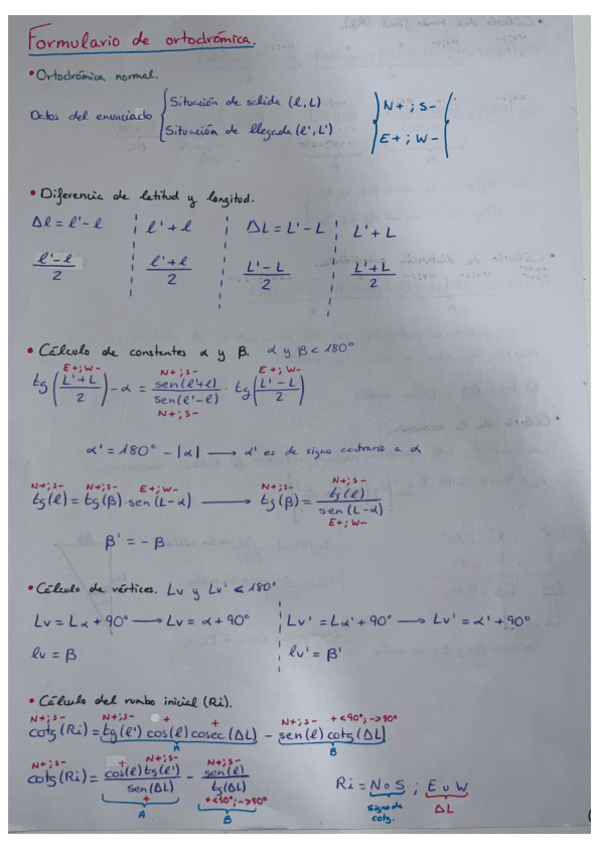 Formulario de ortodrómica.
• Ortodrómica normal.
Datos del enunciado { Situación de salida (l, L)
Situación de llegada (l', L')
N+ ; S-
E+ ; W-
• Diferencia de latitud y longitud.
Δl = l' - l | l' + l | ΔL = L' - L | L' + L
(l' - l)/2 | (l' + l)/2 | (L' - L)/2 | (L' + L)/2
• Cálculo de constantes α y β. α y β < 180°
E+; W- N+; S- E+; W-
tg((L' + L)/2) - α = sen(l'+l)/sen(l'-l) · tg((L' - L)/2)
N+; S-
α' = 180° - |α| → α' es de signo contrario a α
N+; S- N+; S- E+; W- N+; S- N+; S-
tg(l) = tg(β) · sen(L-α) → tg(β) = tg(l)/sen(L-α)
E+; W-
β' = - β
• Cálculo de vértices. Lv y Lv' < 180°
Lv = Lα + 90° → Lv = α + 90° | Lv' = Lα' + 90° → Lv' = α' + 90°
lv = β | lv' = β'
• Cálculo del rumbo inicial (Ri).
N+; S- N+; S- + + N+; S- + <90°; - >90°
cotg(Ri) = tg(l') cos(l) cosec(ΔL) - sen(l) cotg(ΔL)
A B
N+; S- + N+; S- N+; S-
cotg(Ri) = cos(l) tg(l')/sen(ΔL) - sen(l)/tg(ΔL)
+ + <90°; - >90°
A B
Ri = N o S ; E u W
signo de cotg. ΔL